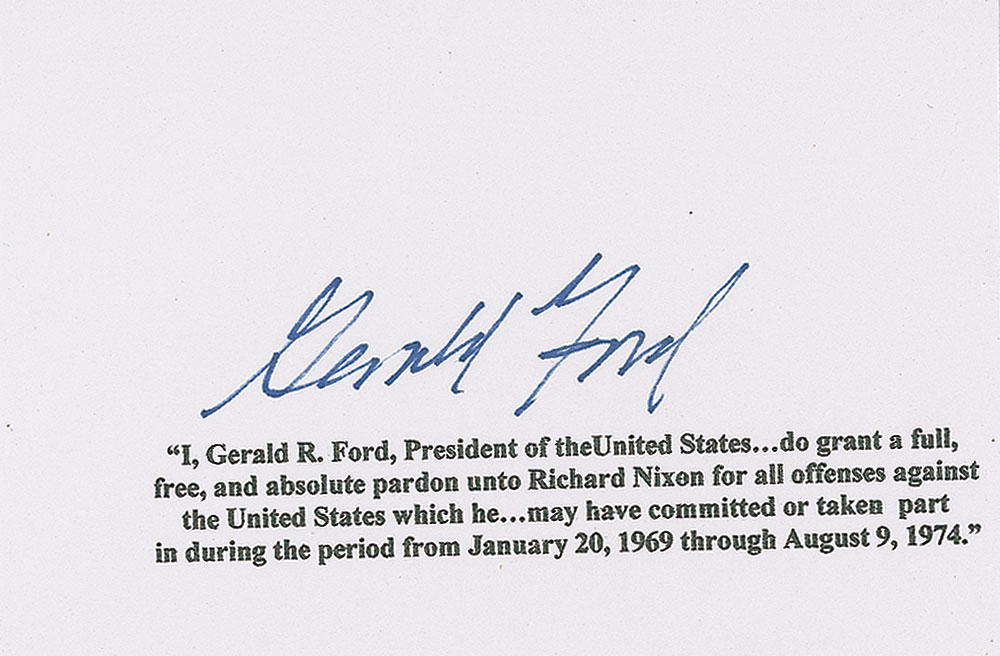 Gerald Ford
“I, Gerald R. Ford, President of theUnited States...do grant a full,
free, and absolute pardon unto Richard Nixon for all offenses against
the United States which he...may have committed or taken part
in during the period from January 20, 1969 through August 9, 1974.”